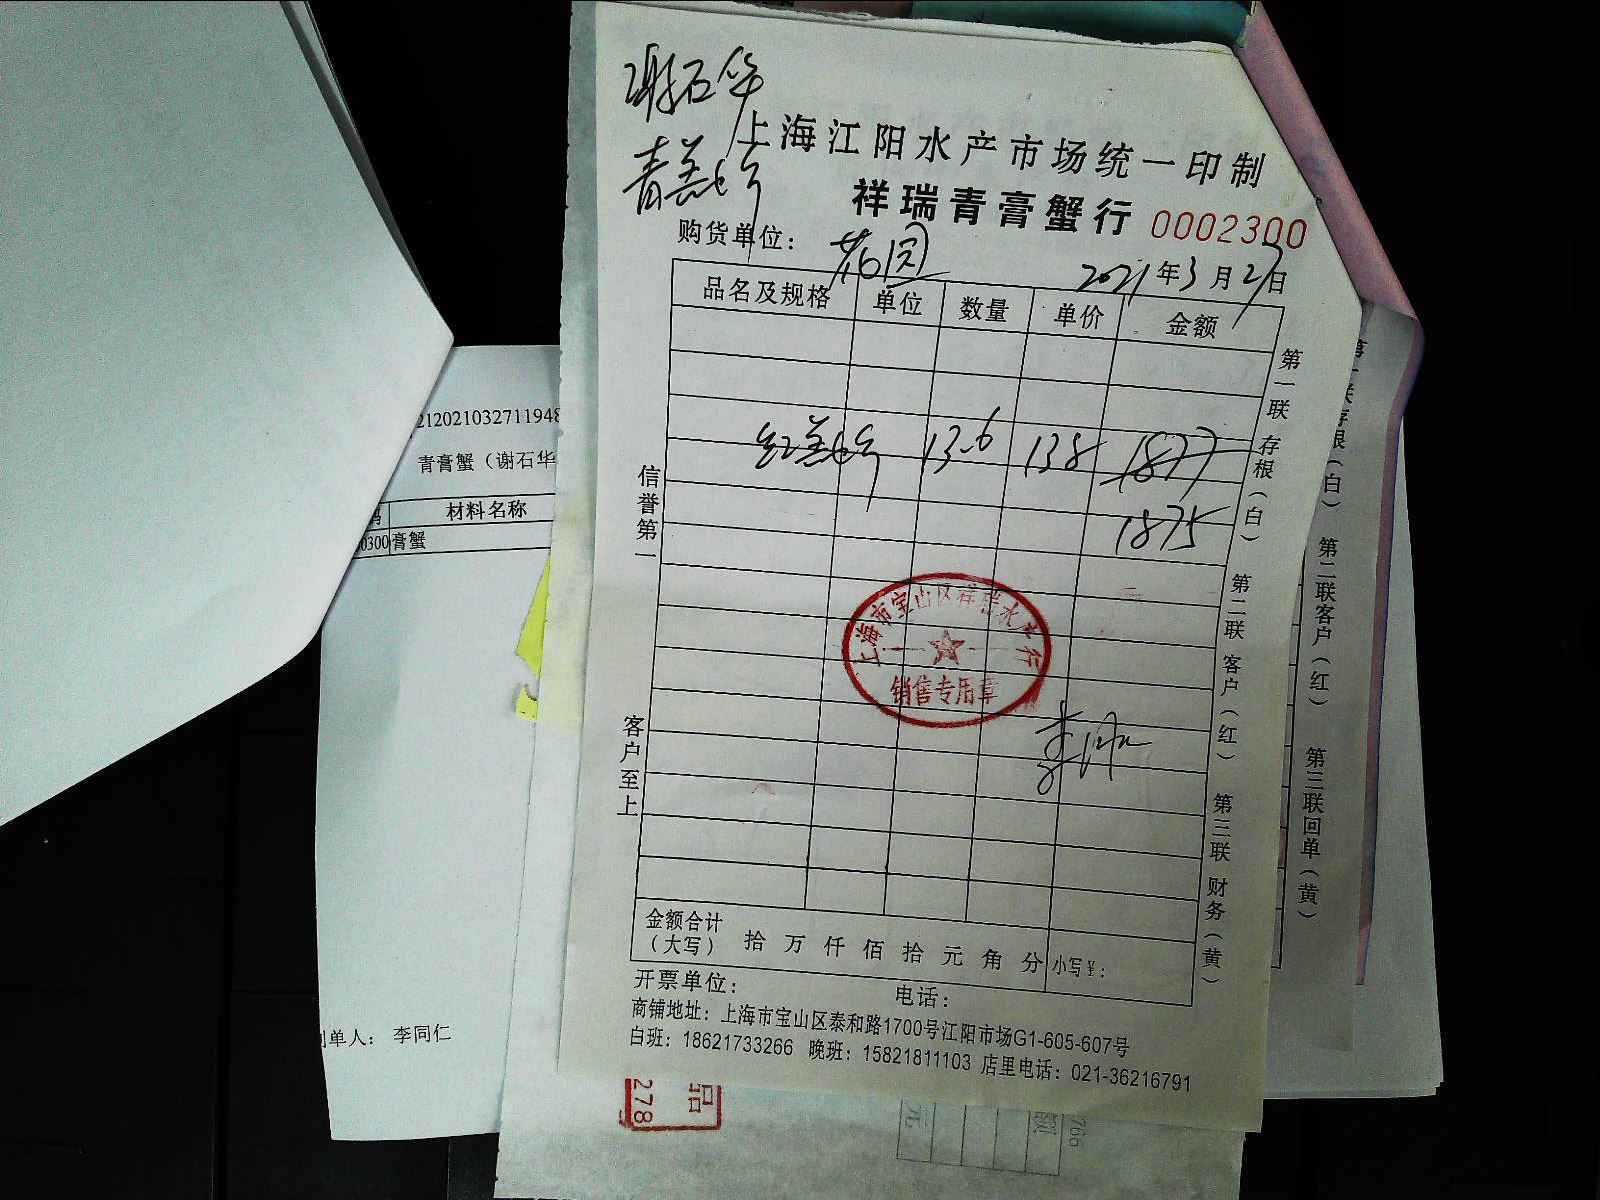 谢石华
青羔蟹
上海江阳水产市场统一印制
祥瑞青膏蟹行 0002300
购货单位： 花园
2021年3月27日
品名及规格 单位 数量 单价 金额
红羔蟹 13.6 138 1877
1875
信誉第一
客户至上
第一联 存根（白） 第二联 客户（红） 第三联 财务（黄）
上海市宝山区祥瑞水产行
销售专用章
金额合计（大写） 拾 万 仟 佰 拾 元 角 分 小写¥：
开票单位： 电话：
商铺地址：上海市宝山区泰和路1700号江阳市场G1-605-607号
白班：18621733266 晚班：15821811103 店里电话：021-36216791
212021032711948
青膏蟹（谢石华
材料名称
0300 膏蟹
制单人： 李同仁
第一联存根（白） 第二联客户（红） 第三联回单（黄）
品
278
元
766